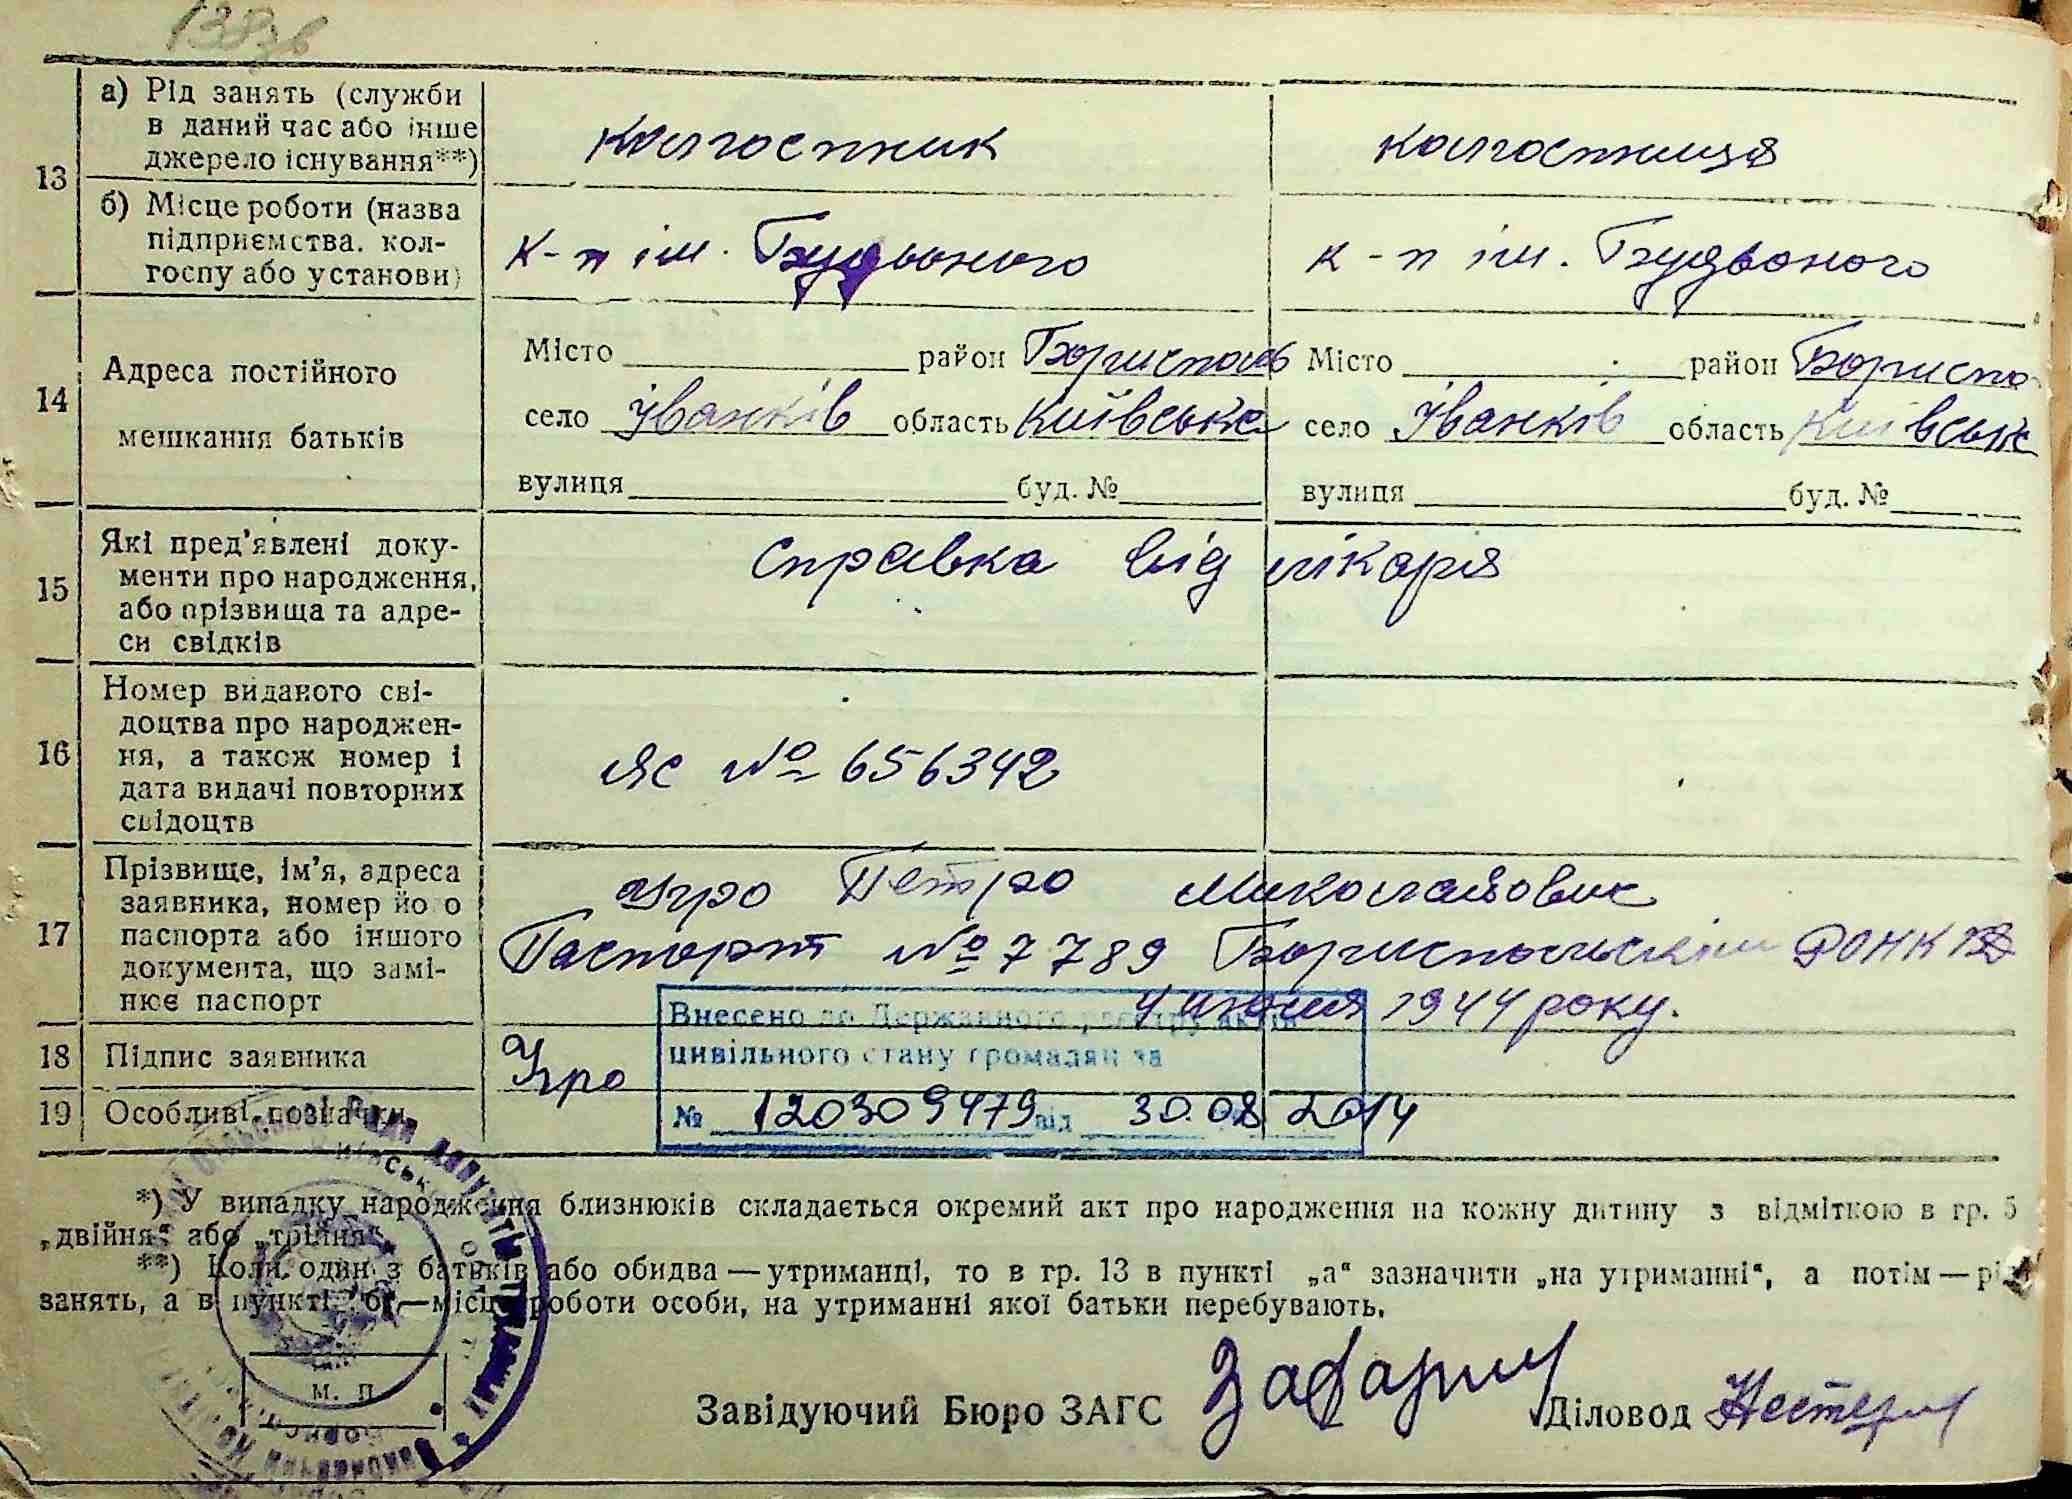 138зв
13
а) Рід занять (служби
в даний час або інше
джерело існування**)
колгоспник
колгоспниця
б) Місце роботи (назва
підприємства, кол-
госпу або установи)
к-п ім. Будьоного
к-п ім. Будьоного
14
Адреса постійного
мешкання батьків
Місто район Бориспіль
село Іванків область Київська
вулиця буд. №
Місто район Бориспо
село Іванків область Київськ
вулиця буд. №
15
Які пред'явлені доку-
менти про народження,
або прізвища та адре-
си свідків
Справка від лікаря
16
Номер виданого сві-
доцтва про народжен-
ня, а також номер і
дата видачі повторних
свідоцтв
ЯС № 656342
17
Прізвище, ім'я, адреса
заявника, номер йо о
паспорта або іншого
документа, що замі-
нює паспорт
Угро Петро Миколайович
Паспорт № 7789 Бориспольским РОНКВД
4 июня 1944 року.
18
Підпис заявника
Угро
19
Особливі позначки
Внесено до Державного реєстру актів
цивільного стану громадян за
№ 120309479 від 30.08 2014
*) У випадку народження близнюків складається окремий акт про народження на кожну дитину з відміткою в гр. 5
„двійня“ або „трійня“.
**) Коли один з батьків або обидва — утриманці, то в гр. 13 в пункті „а“ зазначити „на утриманні“, а потім — рід
занять, а в пункті „б“ — місце роботи особи, на утриманні якої батьки перебувають.
м. п.
Завідуючий Бюро ЗАГС
Діловод